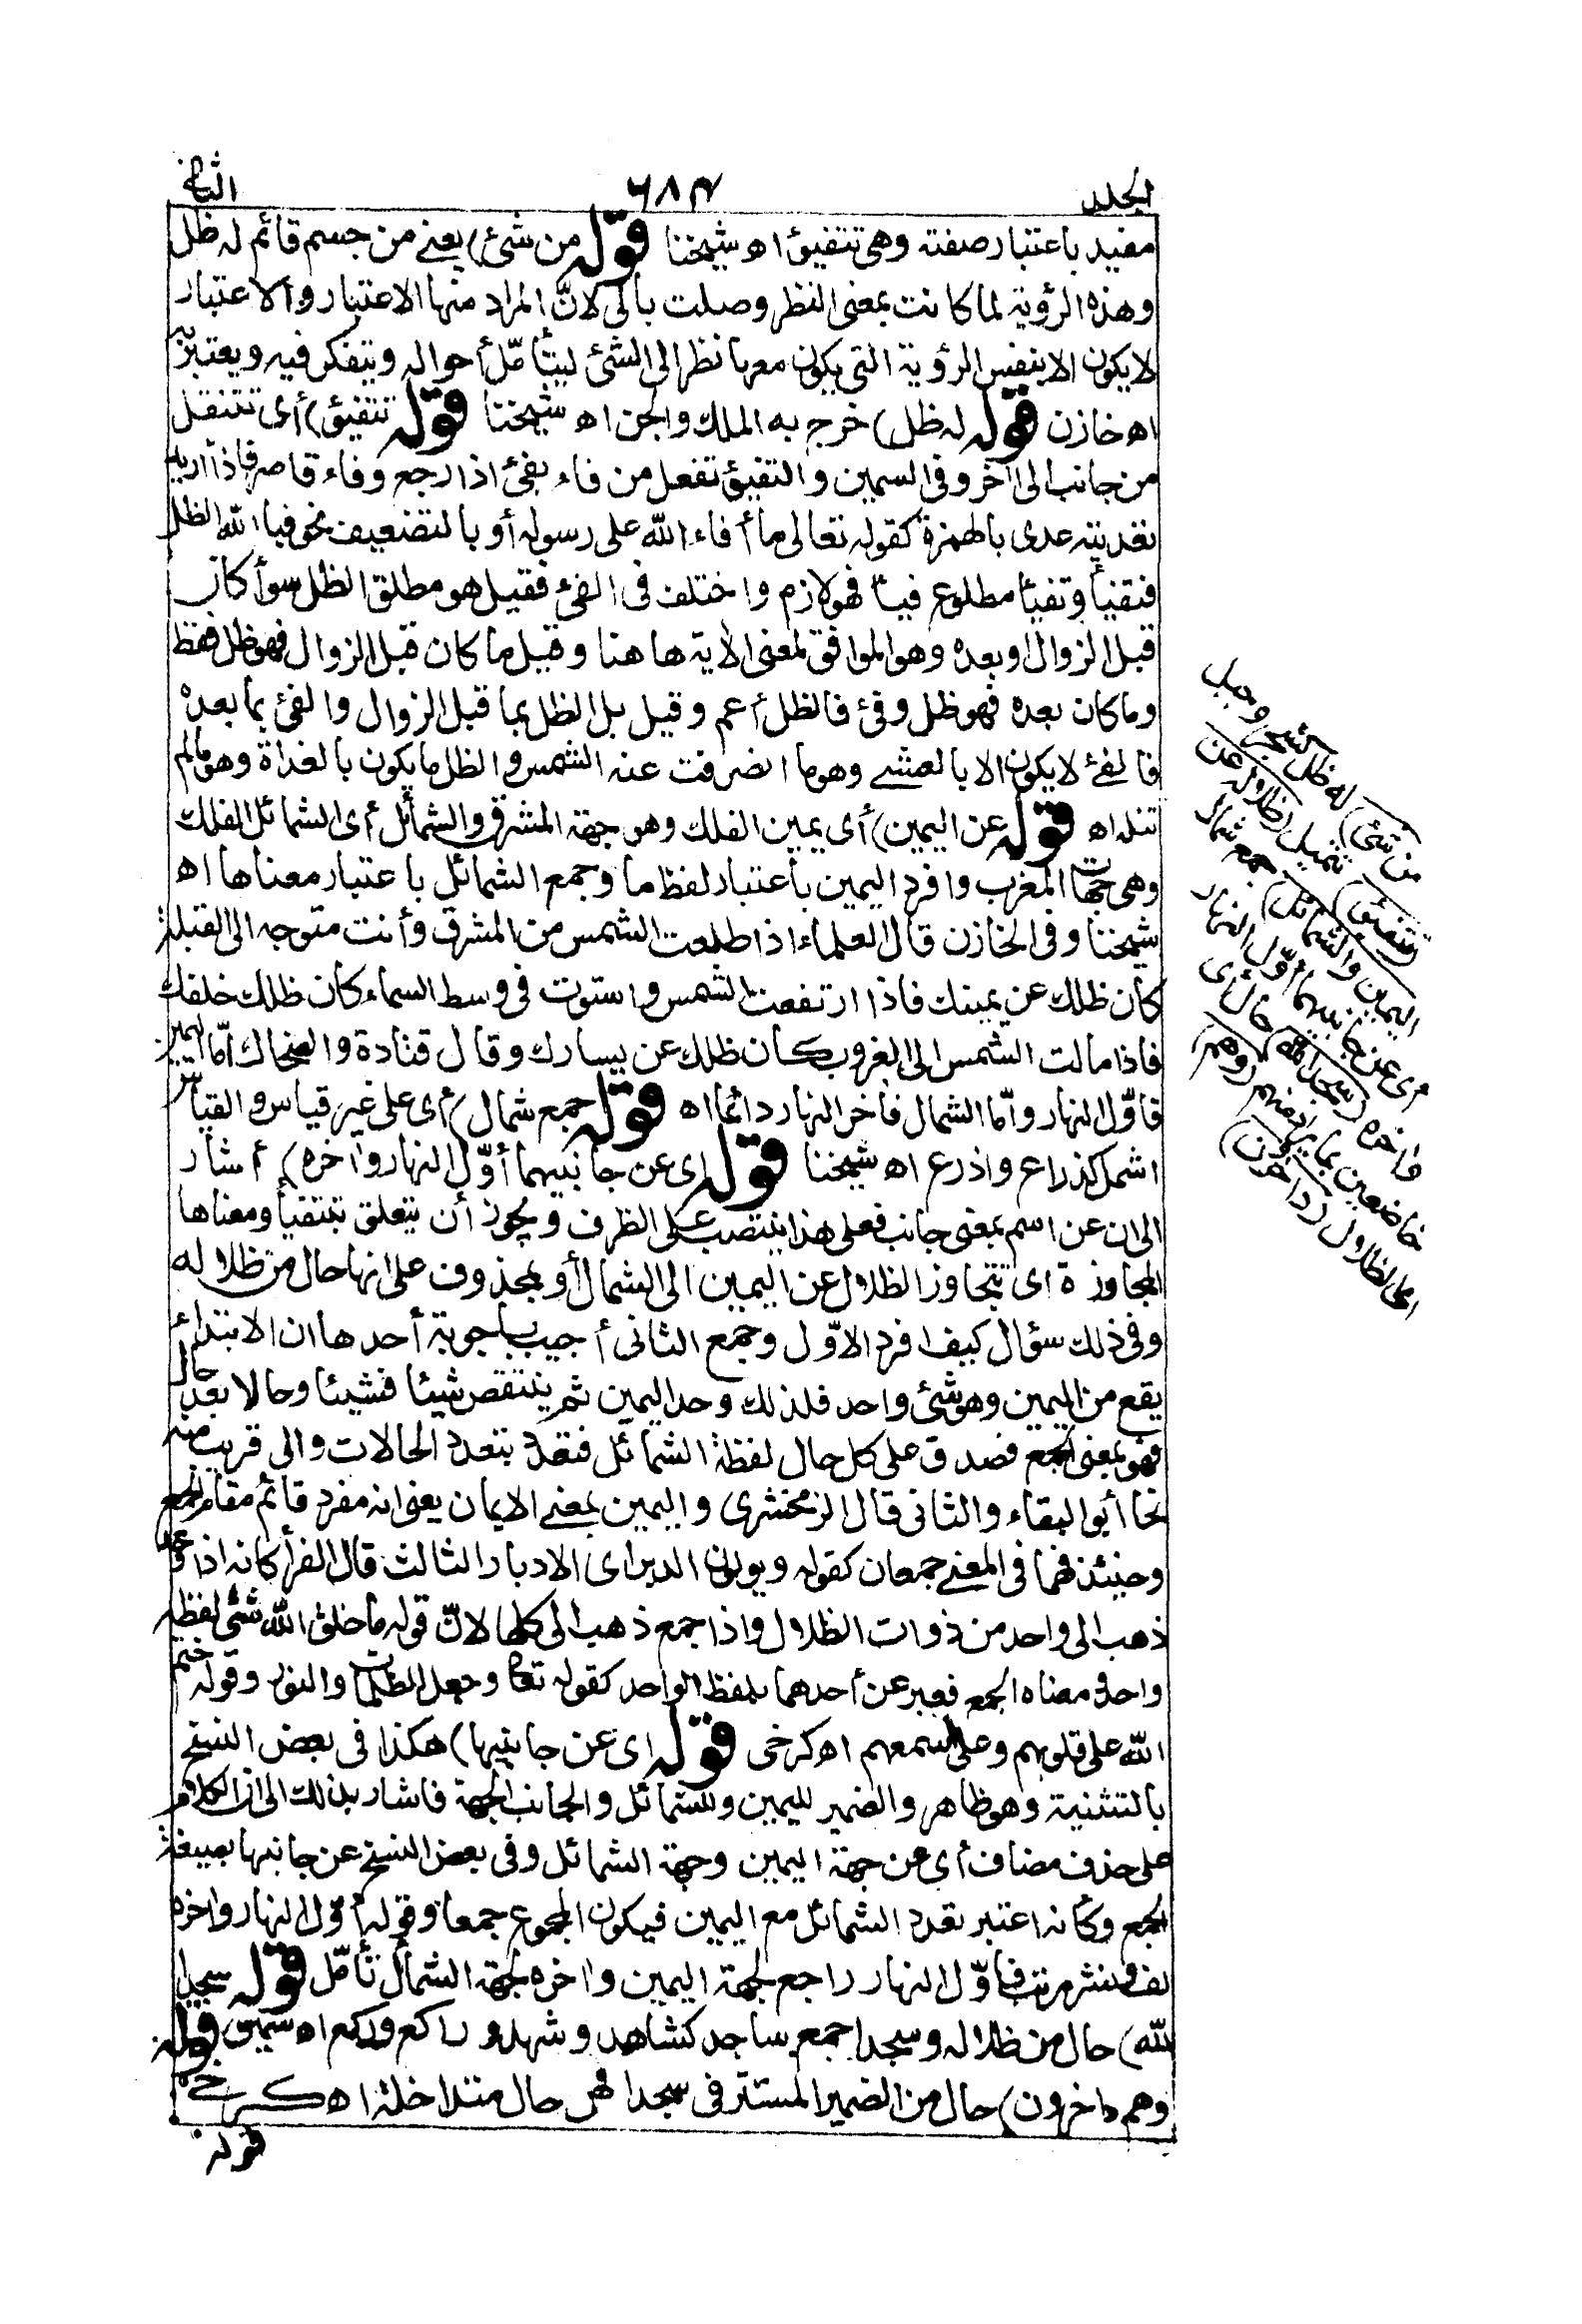 الجلد ٦٨٣ الثانى
مفيد باعتبار صفته وهى تتفيؤ اه شيخنا قوله من شئ) يعنى من جسم قائم له ظل
وهذه الرؤية لما كانت بمعنى النظر وصلت بالى لانّ المراد منها الاعتبار والاعتبار
لا يكون الا بنفس الرؤية التى يكون معها نظر الى الشئ ليتأمّل أحواله ويتفكر فيه ويعتبر به
اه خازن قوله له ظل) خرج به الملك والجن اه شيخنا قوله تتفيؤ) أى تتنقل
من جانب الى اخر وفى السمين والتفيؤ تفعل من فاء يفئ اذا رجع وفاء قاصر فاذا اريد
تعديته عدى بالهمزة كقوله تعالى ما أفاء الله على رسوله أو بالتضعيف نحو فيا الله الظل
فتفيأ وتفيأ مطاوع فيأ فهو لازم واختلف فى الفئ فقيل هو مطلق الظل سوأ كان
قبل الزوال او بعده وهو الموافق لمعنى الاية هاهنا وقيل ما كان قبل الزوال فهو ظل فقط
وما كان بعده فهو ظل وفئ فالظل أعم وقيل بل الظل بما قبل الزوال والفئ بما بعده
فالفئ لا يكون الا بالعشى وهو ما انصرفت عنه الشمس والظل ما يكون بالغداة وهو ما لم
تنله اه قوله عن اليمين) أى يمين الفلك وهو جهة المشرق والشمائل أى الشمائل الفلك
وهى جهات المغرب وافرد اليمين باعتبار لفظ ما وجمع الشمائل باعتبار معناها اه
شيخنا وفى الخازن قال العلماء اذا طلعت الشمس من المشرق وأنت متوجه الى القبلة
كان ظلك عن يمينك فاذا ارتفعت الشمس واستوت فى وسط السماء كان ظلك خلفك
فاذا مالت الشمس الى الغروب كان ظلك عن يسارك وقال قتادة والضحاك امّا اليمين
فاوّل النهار وامّا الشمال فاخر النهار دائما اه قوله جمع شمال) أى على غير قياس والقياس
اشمل كذراع واذرع اه شيخنا قوله اى عن جانبيهما أوّل النهار واخره) أشار
الى ان عن اسم بمعنى جانب فعلى هذا ينتصب على الظرف ويجوز أن يتعلق بتتفيأ ومعناها
المجاوزة اى تتجاوز الظلال عن اليمين الى الشمال أو بمحذوف على انها حال من ظلاله
وفى ذلك سؤال كيف افرد الاوّل وجمع الثانى أجيب باجوبة أحدها ان الابتداء
يقع من اليمين وهو شئ واحد فلذلك وحد اليمين ثم ينتقص شيئا فشيئا وحالا بعد حال
فهو بمعنى الجمع فصدق على كل حال لفظة الشمائل فتعدد بتعدد الحالات والى قريب منه
نحا أبو البقاء والثانى قال الزمخشرى واليمين بمعنى الايمان يعنى انه مفرد قائم مقام الجمع
وحينئذ فهما فى المعنى جمعان كقوله ويولون الدبر اى الادبار الثالث قال الفرأ كانه اذا وحد
ذهب الى واحد من ذوات الظلال واذا جمع ذهب الى كلها لانّ قوله ما خلق الله شئ لفظه
واحد ومعناه الجمع فعبر عن أحدهما بلفظ الواحد كقوله تعا وجعل الظلمات والنور وقوله ختم
الله على قلوبهم وعلى سمعهم اه كرخى قوله اى عن جانبيها) هكذا فى بعض النسخ
بالتثنية وهو ظاهر والضمير لليمين وللشمائل والجانب الجهة فاشار بذلك الى ان الكلام
على حذف مضاف أى عن جهة اليمين وجهة الشمائل وفى بعض النسخ عن جانبها بصيغة
الجمع وكأنه اعتبر تعدد الشمائل مع اليمين فيكون المجموع جمعا وقوله أوّل النهار واخره
لف ونشر مرتب فاوّل النهار راجع لجهة اليمين واخره لجهة الشمال تأمّل قوله سجدا
لله) حال من ظلاله وسجدا جمع ساجد كشاهد وشهد وراكع وركع اه سمين قوله
وهم داخرون) حال من الضمير المستتر فى سجدا فهى حال متداخلة اه كرخى
قوله
من شئ) له ظل كشجر وجبل
(تتفيؤ) تميل (ظلاله عن
اليمين والشمائل) جمع شمال
أى عن جانبيهما أوّل النهار
واخره (سجدا لله) حال أى
خاضعين بما يراد منهم (وهم)
اى الظلال (داخرون)